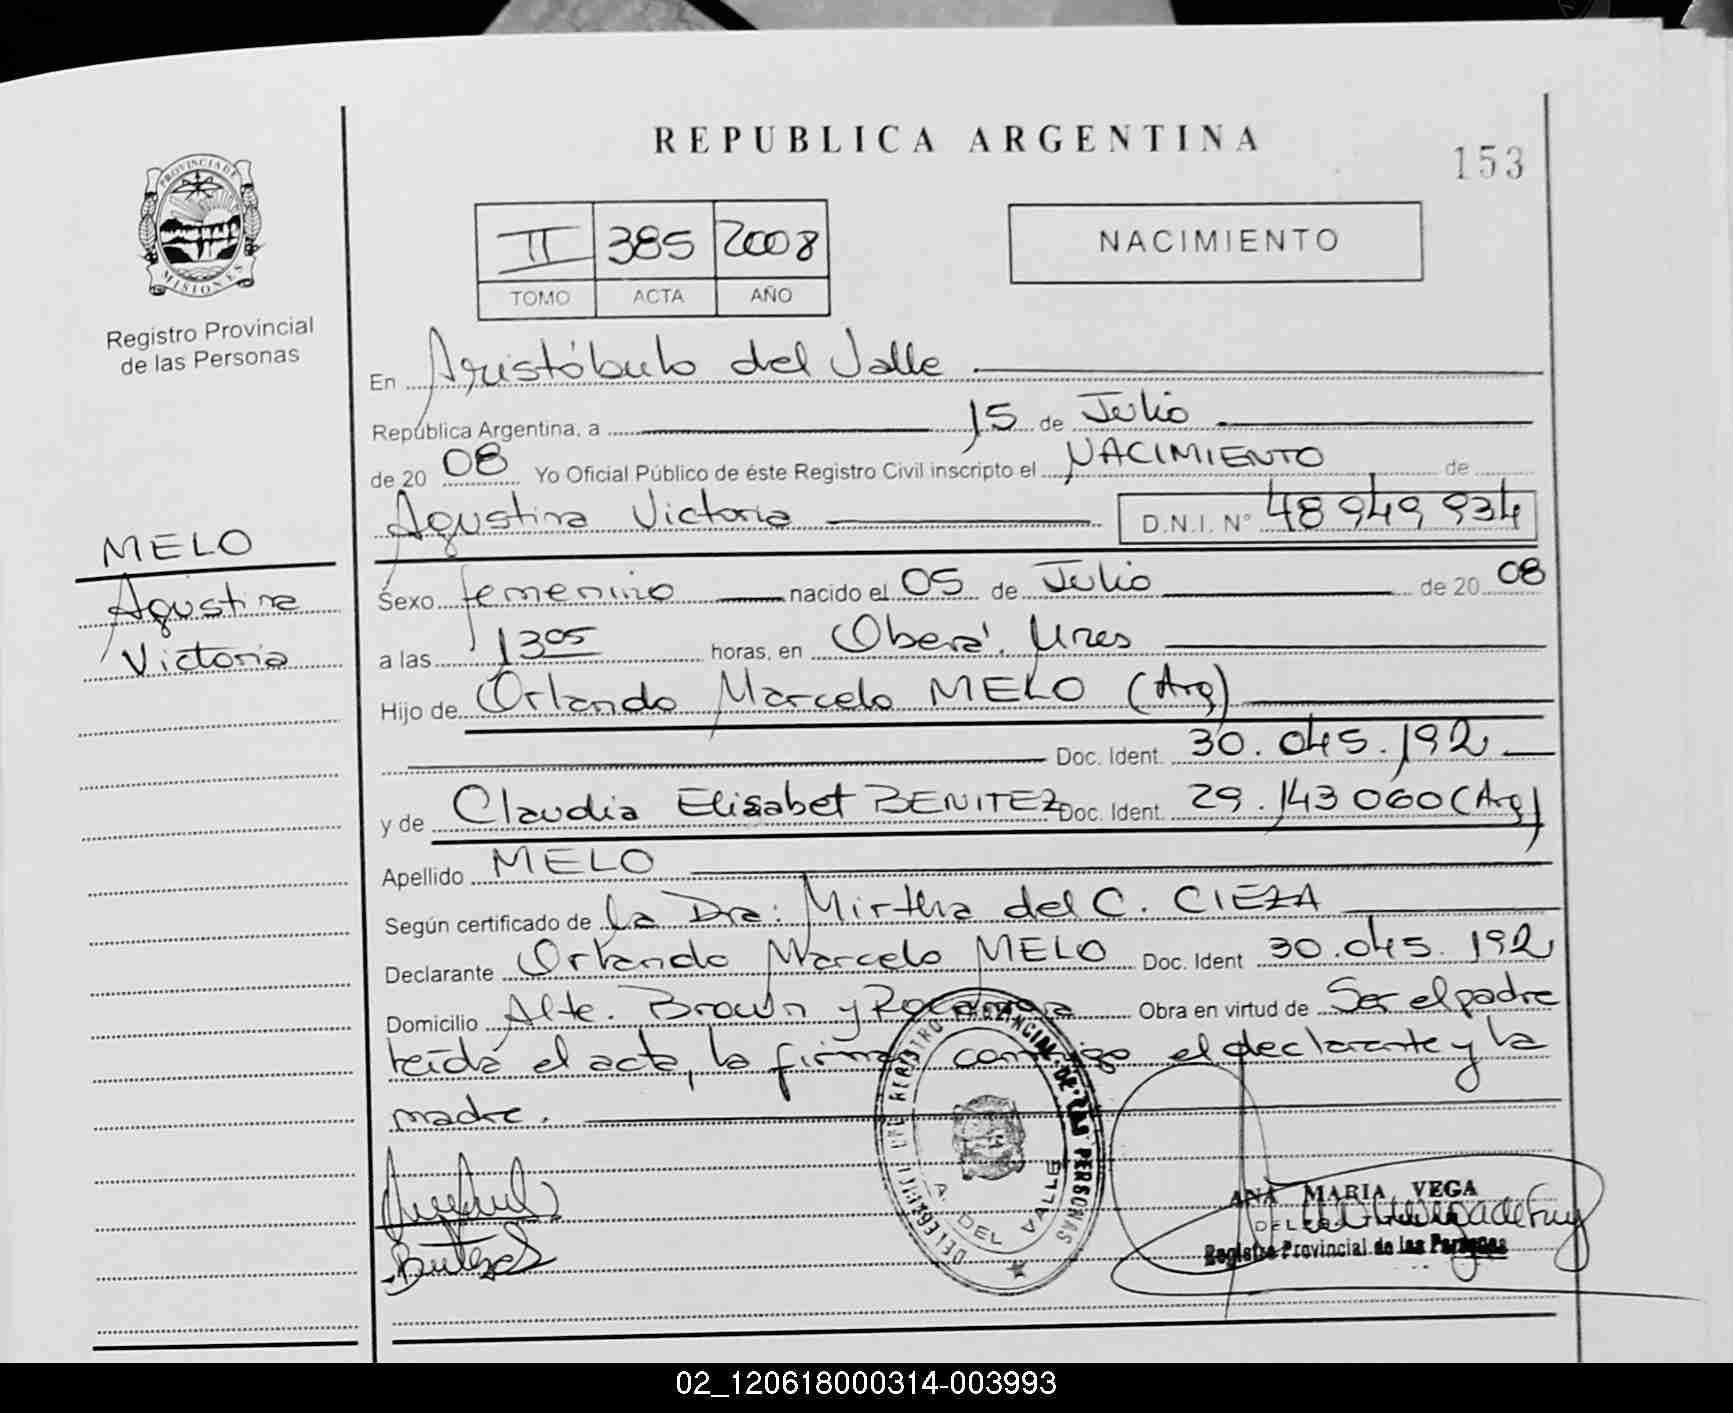 REPUBLICA ARGENTINA
153
PROVINCIA DE
MISIONES
Registro Provincial
de las Personas
II 385 2008
TOMO ACTA AÑO
NACIMIENTO
En Aristóbulo del Valle
República Argentina, a 15 de Julio
de 2008 Yo Oficial Público de éste Registro Civil inscripto el NACIMIENTO de
Agustina Victoria D.N.I. N° 48 949 934
MELO
Agustina
Victoria
Sexo femenino nacido el 05 de Julio de 2008
a las 13 05 horas, en Oberá, Mnes
Hijo de Orlando Marcelo MELO (Arg)
Doc. Ident. 30.045.192
y de Claudia Elisabet BENITEZ Doc. Ident. 29.143 060 (Arg)
Apellido MELO
Según certificado de la Dra: Mirtha del C. CIEZA
Declarante Orlando Marcelo MELO Doc. Ident 30.045.192
Domicilio Alte. Brown y Obra en virtud de Ser el padre
leída el acta, la firma conmigo el declarante y la
madre.
DELEGACION DEL REGISTRO PROVINCIAL DE LAS PERSONAS
A. DEL VALLE
ANA MARIA VEGA
Registro Provincial de las Personas
02_120618000314-003993